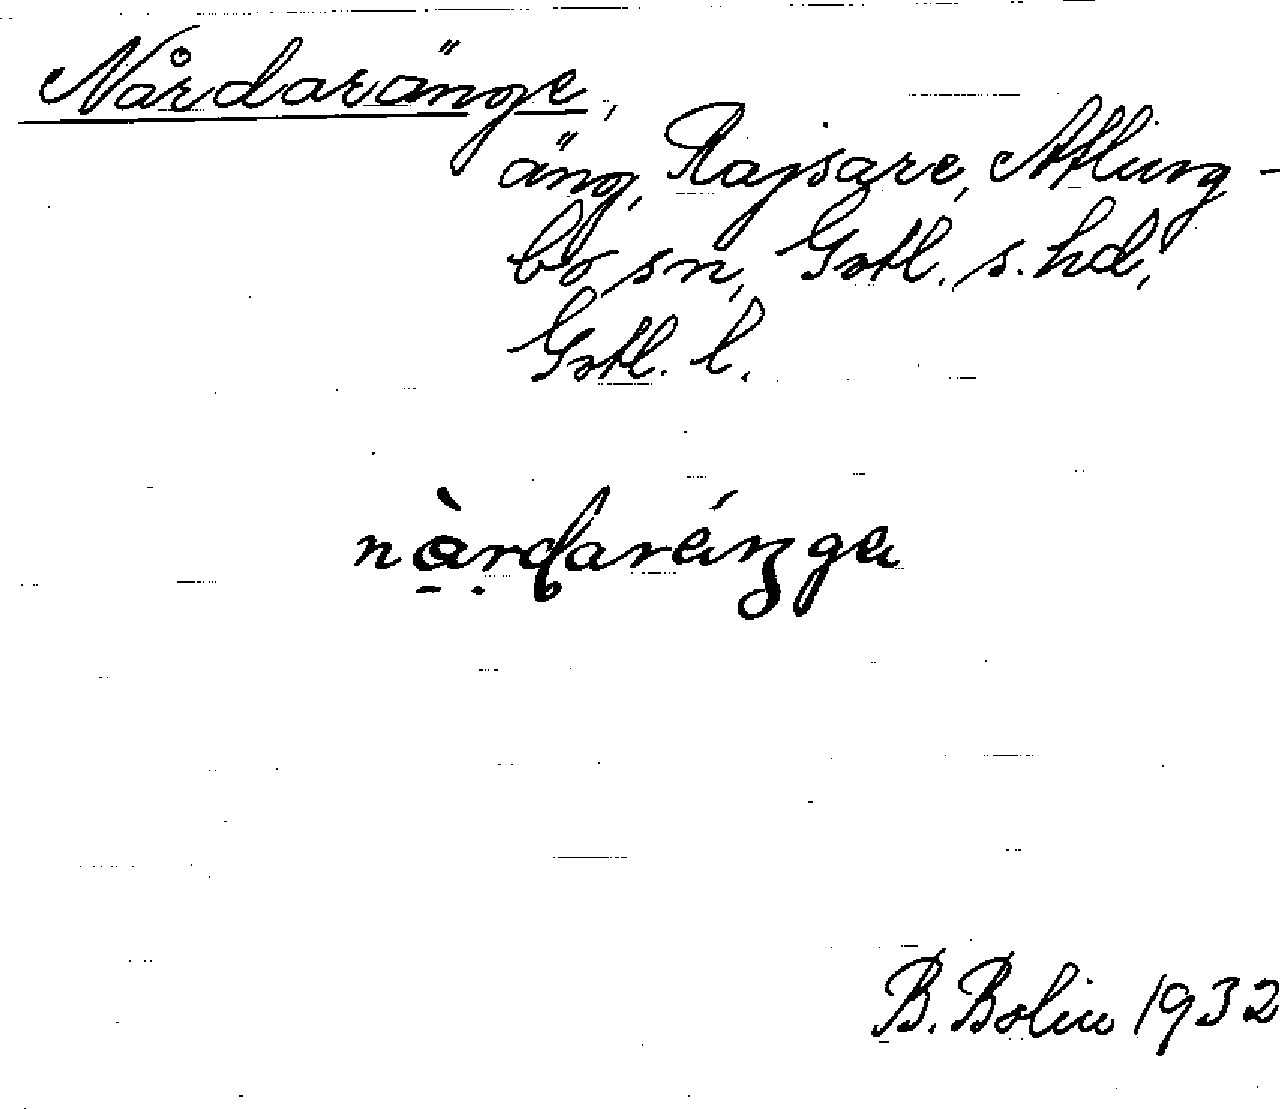 Nårdaränge,
äng, Rajsare, Atling-
bo sn, Gotl. s. hd,
Gotl. l.
nàrdaránga
B. Bolin 1932